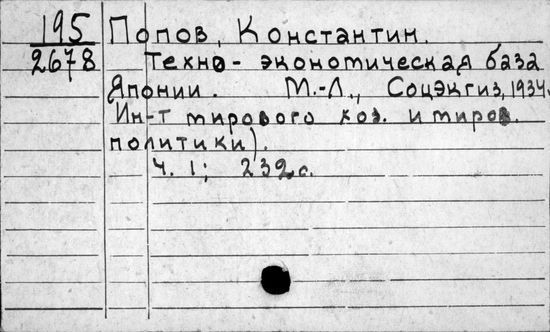 195 Попов, Константин.
2678 Техно-экономическая база
Японии. М.-Л., Соцэкгиз, 1934.
Ин-т мирового хоз. и миров.
политики).
Ч. 1; 239 с.